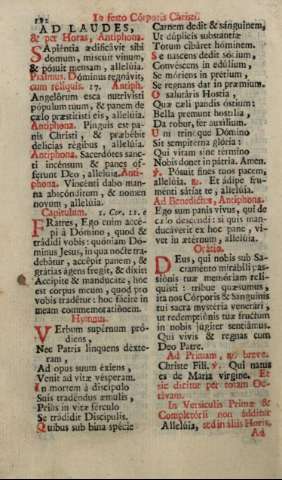 192 In festo Córporis Christi.
AD LAUDES,
& per Horas, Antiphona.
SApiéntia ædificávit sibi
domum, miscuit vinum,
& pósuit mensam, allelúia.
Psalmus. Dóminus regnávit,
cum reliquis. 17. Antiph.
Angelórum esca nutrivísti
pópulum tuum, & panem de
cælo præstitísti eis, allelúia.
Antiphona. Pinguis est pa-
nis Christi, & præbébit
delícias régibus, allelúia.
Antiphona. Sacerdótes sanc-
ti incénsum & panes óf-
ferunt Deo, allelúia. Anti-
phona. Vincénti dabo man-
na abscónditum, & nomen
novum, allelúia.
Capitulum. 1. Cor. 11. e
FRatres, Ego enim accé-
pi à Dómino, quod &
trádidi vobis: quóniam Dó-
minus Jesus, in qua nocte tra-
debátur, accépit panem, &
grátias agens fregit, & dixit
Accípite & manducáte, hoc
est corpus meum, quod pro
vobis tradétur: hoc fácite in
meam commemoratiónem.
Hymnus.
VErbum supérnum pró-
diens,
Nec Patris linquens déxte-
ram,
Ad opus suum éxiens,
Venit ad vitæ vésperam.
In mortem à discípulo
Suis tradéndus æmulis,
Priùs in vitæ férculo
Se trádidit Discípulis.
Quibus sub bina spécie
Carnem dedit & sánguinem,
Ut dúplicis substántiæ
Totum cibáret hóminem.
Se nascens dedit sócium,
Convéscens in edúlium,
Se móriens in prétium,
Se regnans dat in præmium.
O salutáris Hóstia,
Quæ cæli pandis óstium:
Bella premunt hostília,
Da robur, fer auxílium.
Uni trinoque Dómino
Sit sempitérna glória:
Qui vitam sine término
Nobis donet in pátria. Amen.
℣. Pósuit fines tuos pacem,
allelúia. ℟. Et ádipe fru-
ménti sátiat te, allelúia.
Ad Benedictus, Antiphona.
Ego sum panis vivus, qui de
cælo descéndi: si quis man-
ducáverit ex hoc pane, vi-
vet in ætérnum, allelúia.
Oratio.
DEus, qui nobis sub Sa-
craménto mirábili pas-
siónis tuæ memóriam reli-
quísti: tríbue quæsumus,
ita nos Córporis & Sánguinis
tui sacra mystéria venerári,
ut redemptiónis tuæ fructum
in nobis júgiter sentiámus.
Qui vivis & regnas cum
Deo Patre.
Ad Primam, ℟. breve.
Christe Fili. ℣. Qui natus
es de María vírgine. Et
sic dicitur per totam Oc-
tavam.
In Versiculis Primæ &
Completórii non additur
Allelúia, sed in aliis Horis.
Ad